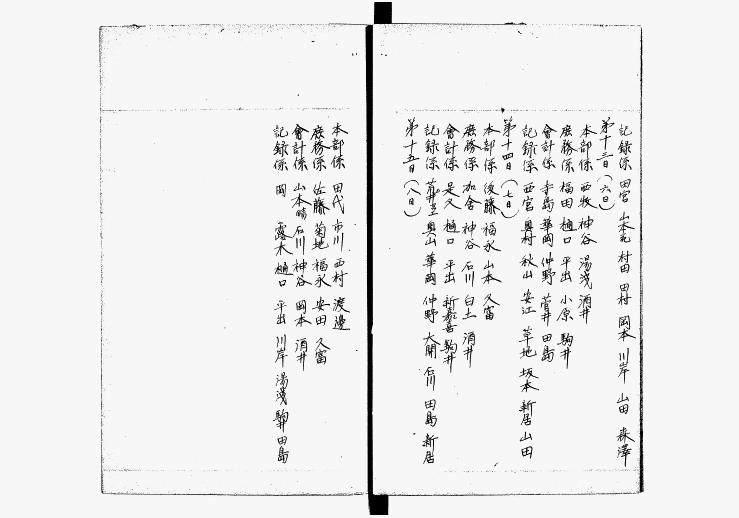 記録係 田宮 山本 村田 田村 岡本 川岸 山田 森澤
第十三日(六日)
本部係 西牧 神谷 湯浅 酒井
庶務係 福田 樋口 平出 小原 駒井
會計係 寺島 華岡 仲野 菅井 田島
記録係 西宮 奥村 秋山 安江 草地 坂本 新居 山田
第十四日(七日)
本部係 後藤 福永 山本 久富
庶務係 加舎 神谷 石川 白土 酒井
會計係 是久 樋口 平出 新嘉喜 駒井
記録係 荒井 奥山 華岡 仲野 大開 石川 田島 新居
第十五日(八日)
本部係 田代 市川 西村 渡邊
庶務係 佐藤 菊地 福永 安田 久富
會計係 山本晴 石川 神谷 岡本 酒井
記録係 岡 露木 樋口 平出 川岸 湯浅 駒井 田島